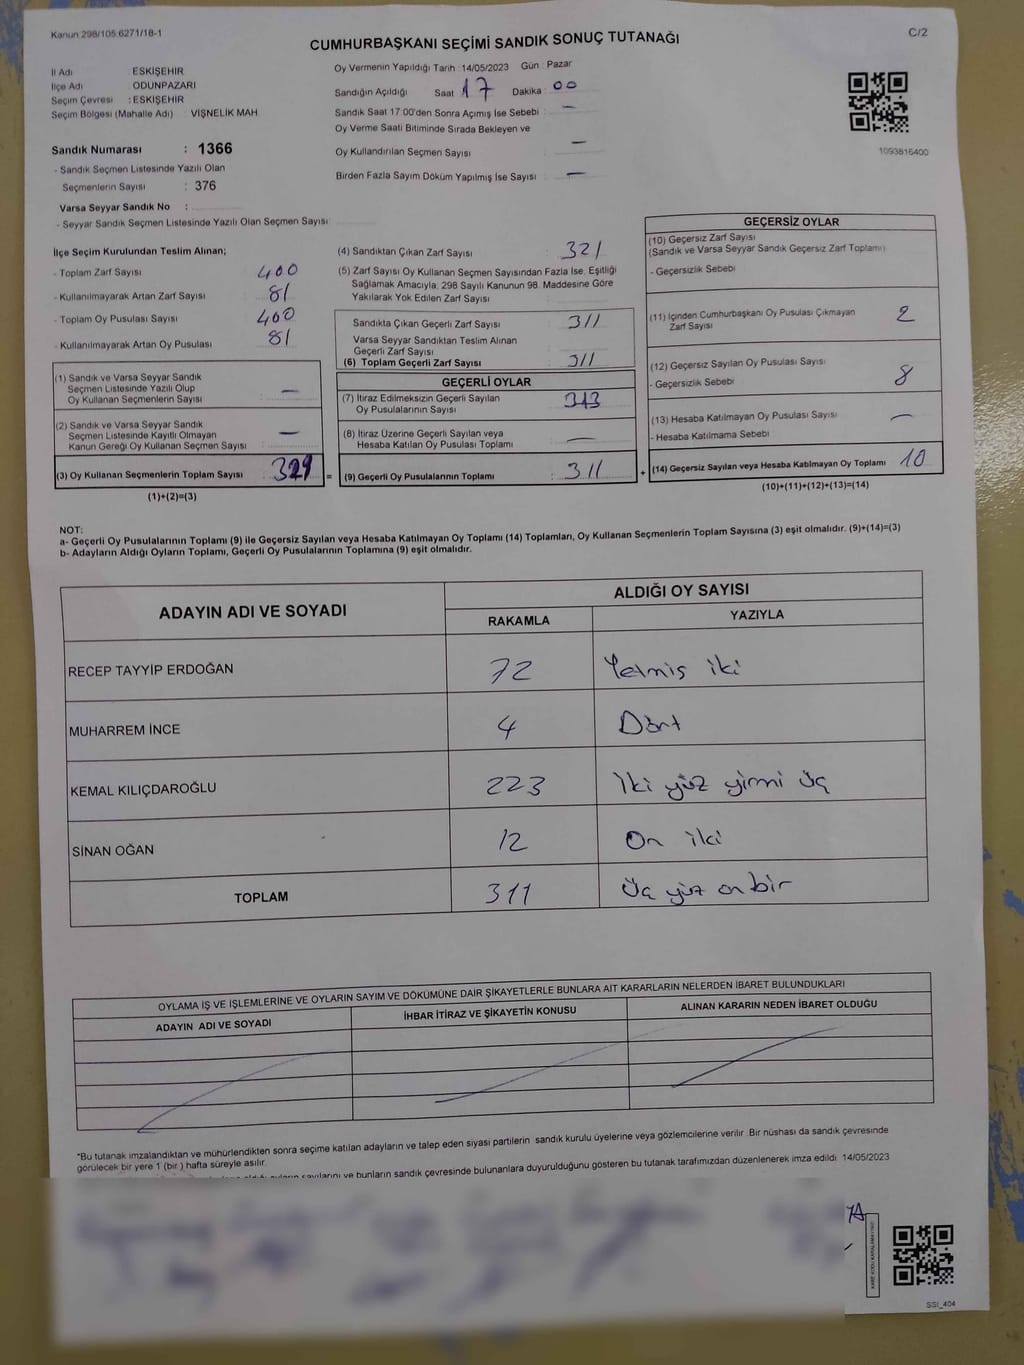 Kanun 298/105.6271/18-1
C/2
CUMHURBAŞKANI SEÇİMİ SANDIK SONUÇ TUTANAĞI
İl Adı : ESKİŞEHİR
İlçe Adı : ODUNPAZARI
Seçim Çevresi : ESKİŞEHİR
Seçim Bölgesi (Mahalle Adı) VİŞNELİK MAH
Sandık Numarası : 1366
- Sandık Seçmen Listesinde Yazılı Olan
Seçmenlerin Sayısı : 376
Varsa Seyyar Sandık No :
- Seyyar Sandık Seçmen Listesinde Yazılı Olan Seçmen Sayısı
Oy Vermenin Yapıldığı Tarih : 14/05/2023 Gün : Pazar
Sandığın Açıldığı Saat 17 Dakika : 00
Sandık Saat 17:00'den Sonra Açımış İse Sebebi : —
Oy Verme Saati Bitiminde Sırada Bekleyen ve
Oy Kullandırılan Seçmen Sayısı : —
Birden Fazla Sayım Döküm Yapılmış İse Sayısı : —
1093816400
İlçe Seçim Kurulundan Teslim Alınan;
- Toplam Zarf Sayısı : 400
- Kullanılmayarak Artan Zarf Sayısı : 81
- Toplam Oy Pusulası Sayısı : 400
- Kullanılmayarak Artan Oy Pusulası : 81
(1) Sandık ve Varsa Seyyar Sandık
Seçmen Listesinde Yazılı Olup
Oy Kullanan Seçmenlerin Sayısı : —
(2) Sandık ve Varsa Seyyar Sandık
Seçmen Listesinde Kayıtlı Olmayan
Kanun Gereği Oy Kullanan Seçmen Sayısı : —
(3) Oy Kullanan Seçmenlerin Toplam Sayısı :
(1)+(2)=(3)
(4) Sandıktan Çıkan Zarf Sayısı : 321
(5) Zarf Sayısı Oy Kullanan Seçmen Sayısından Fazla İse, Eşitliği
Sağlamak Amacıyla, 298 Sayılı Kanunun 98. Maddesine Göre
Yakılarak Yok Edilen Zarf Sayısı :
Sandıkta Çıkan Geçerli Zarf Sayısı : 311
Varsa Seyyar Sandıktan Teslim Alınan
Geçerli Zarf Sayısı :
(6) Toplam Geçerli Zarf Sayısı : 311
GEÇERLİ OYLAR
(7) İtiraz Edilmeksizin Geçerli Sayılan
Oy Pusulalarının Sayısı :
(8) İtiraz Üzerine Geçerli Sayılan veya
Hesaba Katılan Oy Pusulası Toplamı : —
= (9) Geçerli Oy Pusulalarının Toplamı : 311 +
GEÇERSİZ OYLAR
(10) Geçersiz Zarf Sayısı
(Sandık ve Varsa Seyyar Sandık Geçersiz Zarf Toplamı)
- Geçersizlik Sebebi
(11) İçinden Cumhurbaşkanı Oy Pusulası Çıkmayan
Zarf Sayısı 2
(12) Geçersiz Sayılan Oy Pusulası Sayısı
- Geçersizlik Sebebi 8
(13) Hesaba Katılmayan Oy Pusulası Sayısı —
- Hesaba Katılmama Sebebi
(14) Geçersiz Sayılan veya Hesaba Katılmayan Oy Toplamı 10
(10)+(11)+(12)+(13)=(14)
NOT:
a- Geçerli Oy Pusulalarının Toplamı (9) ile Geçersiz Sayılan veya Hesaba Katılmayan Oy Toplamı (14) Toplamları, Oy Kullanan Seçmenlerin Toplam Sayısına (3) eşit olmalıdır. (9)+(14)=(3)
b- Adayların Aldığı Oyların Toplamı, Geçerli Oy Pusulalarının Toplamına (9) eşit olmalıdır.
ADAYIN ADI VE SOYADI
ALDIĞI OY SAYISI
RAKAMLA YAZIYLA
RECEP TAYYİP ERDOĞAN 72 Yetmiş iki
MUHARREM İNCE 4 Dört
KEMAL KILIÇDAROĞLU 223 İki yüz yirmi üç
SİNAN OĞAN 12 On iki
TOPLAM 311 Üç yüz on bir
OYLAMA İŞ VE İŞLEMLERİNE VE OYLARIN SAYIM VE DÖKÜMÜNE DAİR ŞİKAYETLERLE BUNLARA AİT KARARLARIN NELERDEN İBARET BULUNDUKLARI
ADAYIN ADI VE SOYADI İHBAR İTİRAZ VE ŞİKAYETİN KONUSU ALINAN KARARIN NEDEN İBARET OLDUĞU
*Bu tutanak imzalandıktan ve mühürlendikten sonra seçime katılan adayların ve talep eden siyasi partilerin sandık kurulu üyelerine veya gözlemcilerine verilir. Bir nüshası da sandık çevresinde
görülecek bir yere 1 (bir ) hafta süreyle asılır.
sayılarını ve bunların sandık çevresinde bulunanlara duyurulduğunu gösteren bu tutanak tarafımızdan düzenlenerek imza edildi 14/05/2023
SSI_404